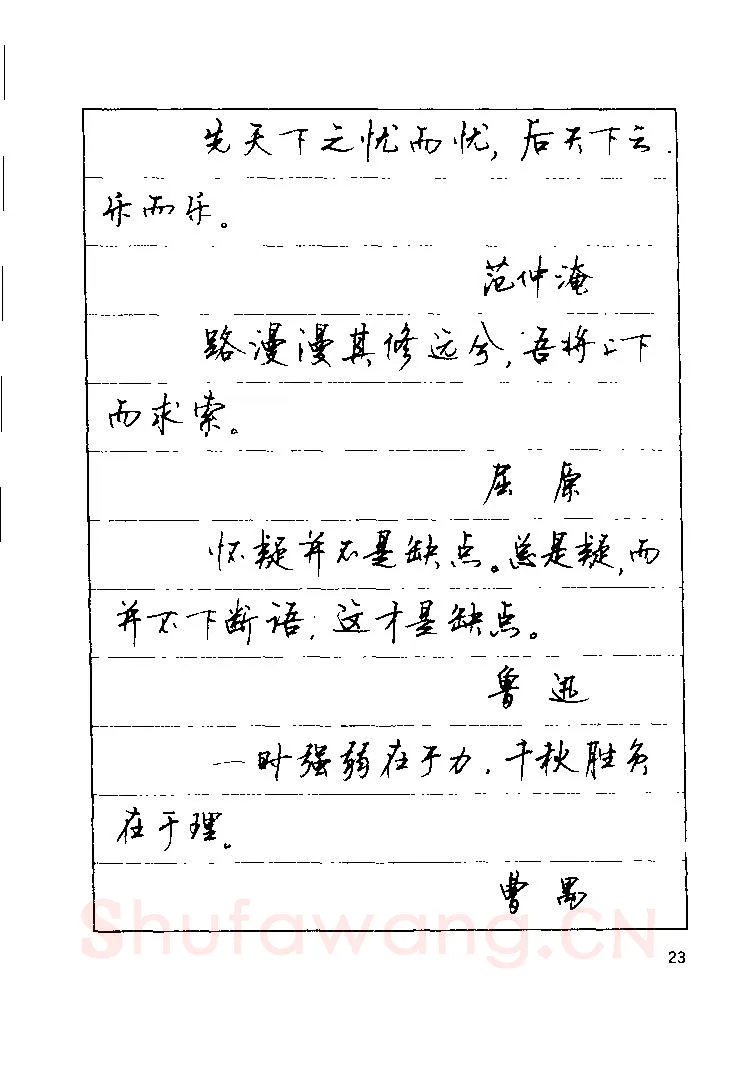 先天下之忧而忧，后天下之
乐而乐。
范仲淹
路漫漫其修远兮，吾将上下
而求索。
屈原
怀疑并不是缺点。总是疑，而
并不下断语，这才是缺点。
鲁迅
一时强弱在于力，千秋胜负
在于理。
曹禺
Shufawang.CN
23